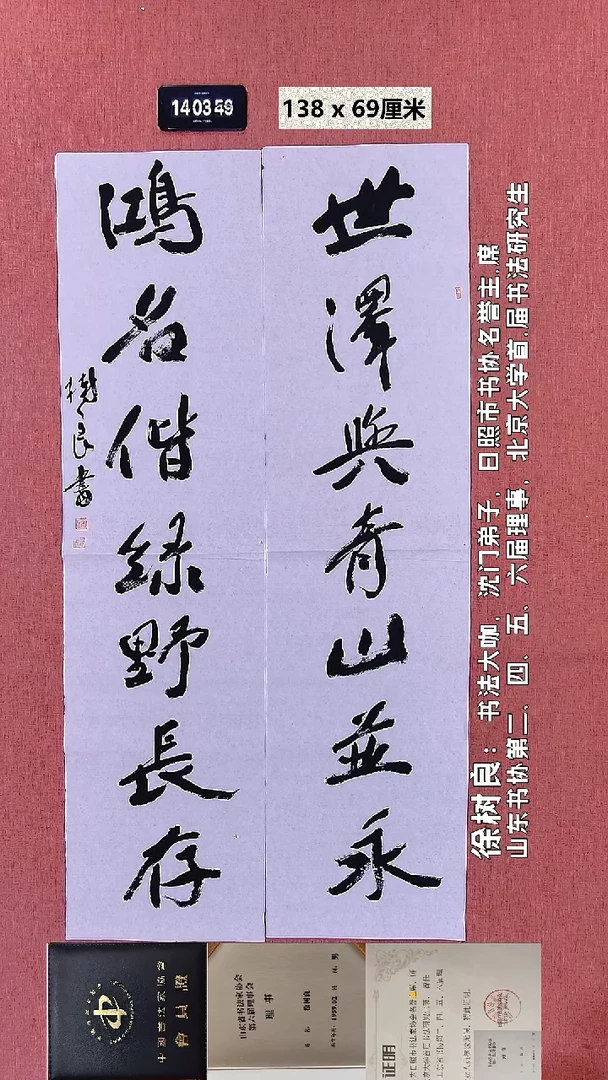 140359
138 x 69厘米
世澤與青山並永
鴻名偕綠野長存
樹良書
徐树良：书法大咖，沈门弟子，日照市书协名誉主.席
山东书协第二、四、五、六届理事，北京大学首.届书法研究生
中國書法家協會
會員證
山东省书法家协会
理事
证明